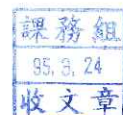 課務組
95. 3. 24
收文章